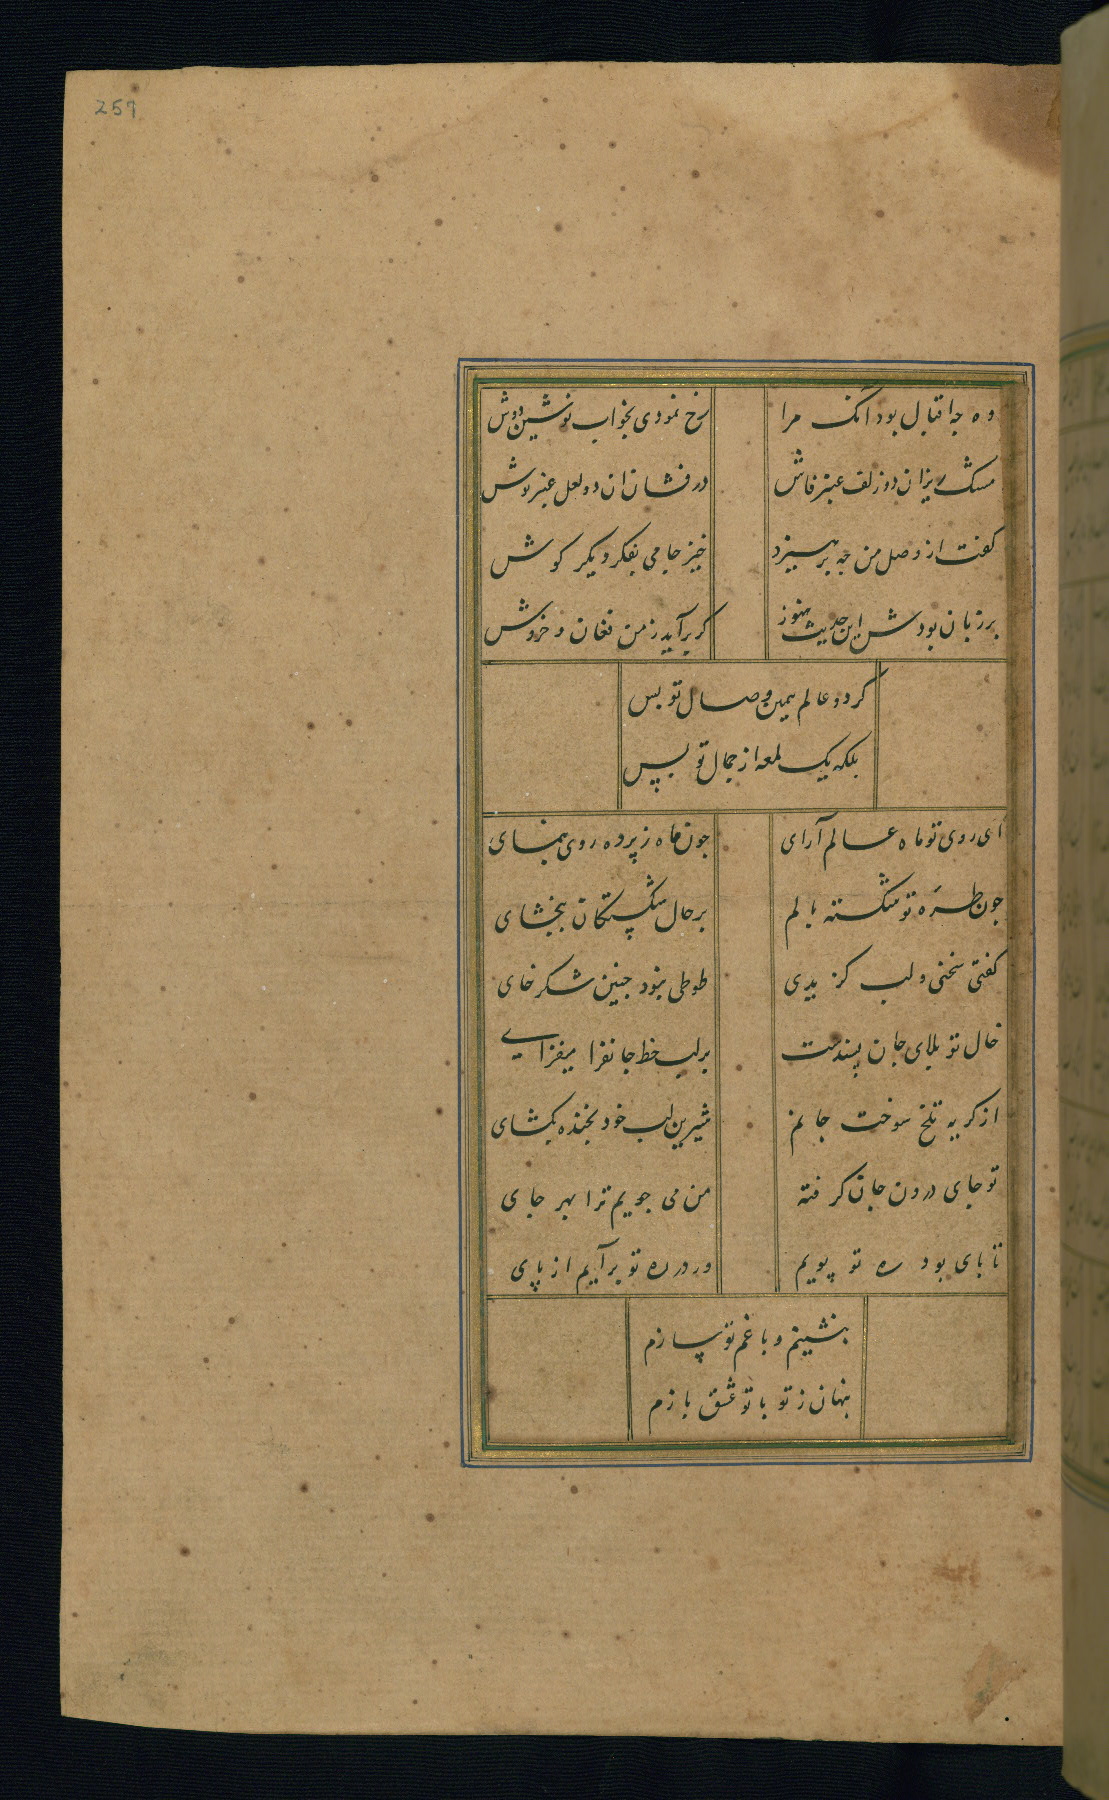 257
وه جه اقبال بود آنک مرا
رخ نمودی بخواب نوشین دوش
مسک ریزان دو زلف عنبر فاش
در فشان ان دو لعل عنبر نوش
کفت از وصل من جه برهیزد
خیز جامی بفکر دیکر کوش
بر زبان بودش این حدیث هنوز
کر برآید ز من فغان و خروش
کز دو عالم همین وصال تو بس
بلکه یک لمعه از جمال تو بس
ای روی تو ماه عالم آرای
جون ماه ز پرده روی بنمای
جون طره تو شکسته بالم
بر حال شکستکان ببخشای
کفتی سخنی و لب کزیدی
طوطی نبود جنین شکر خای
خال تو بلای جان بسندست
بر لب خط جانفزا میفزای
از کریه تلخ سوخت جانم
شیرین لب خود بخنده بکشای
تو جای درون جان کرفته
من می جویم ترا بهر جای
تا بای بود ره تو پویم
ور در ره تو برآیم از پای
بنشینم و با غم تو سازم
بنهان ز تو با تو عشق بازم